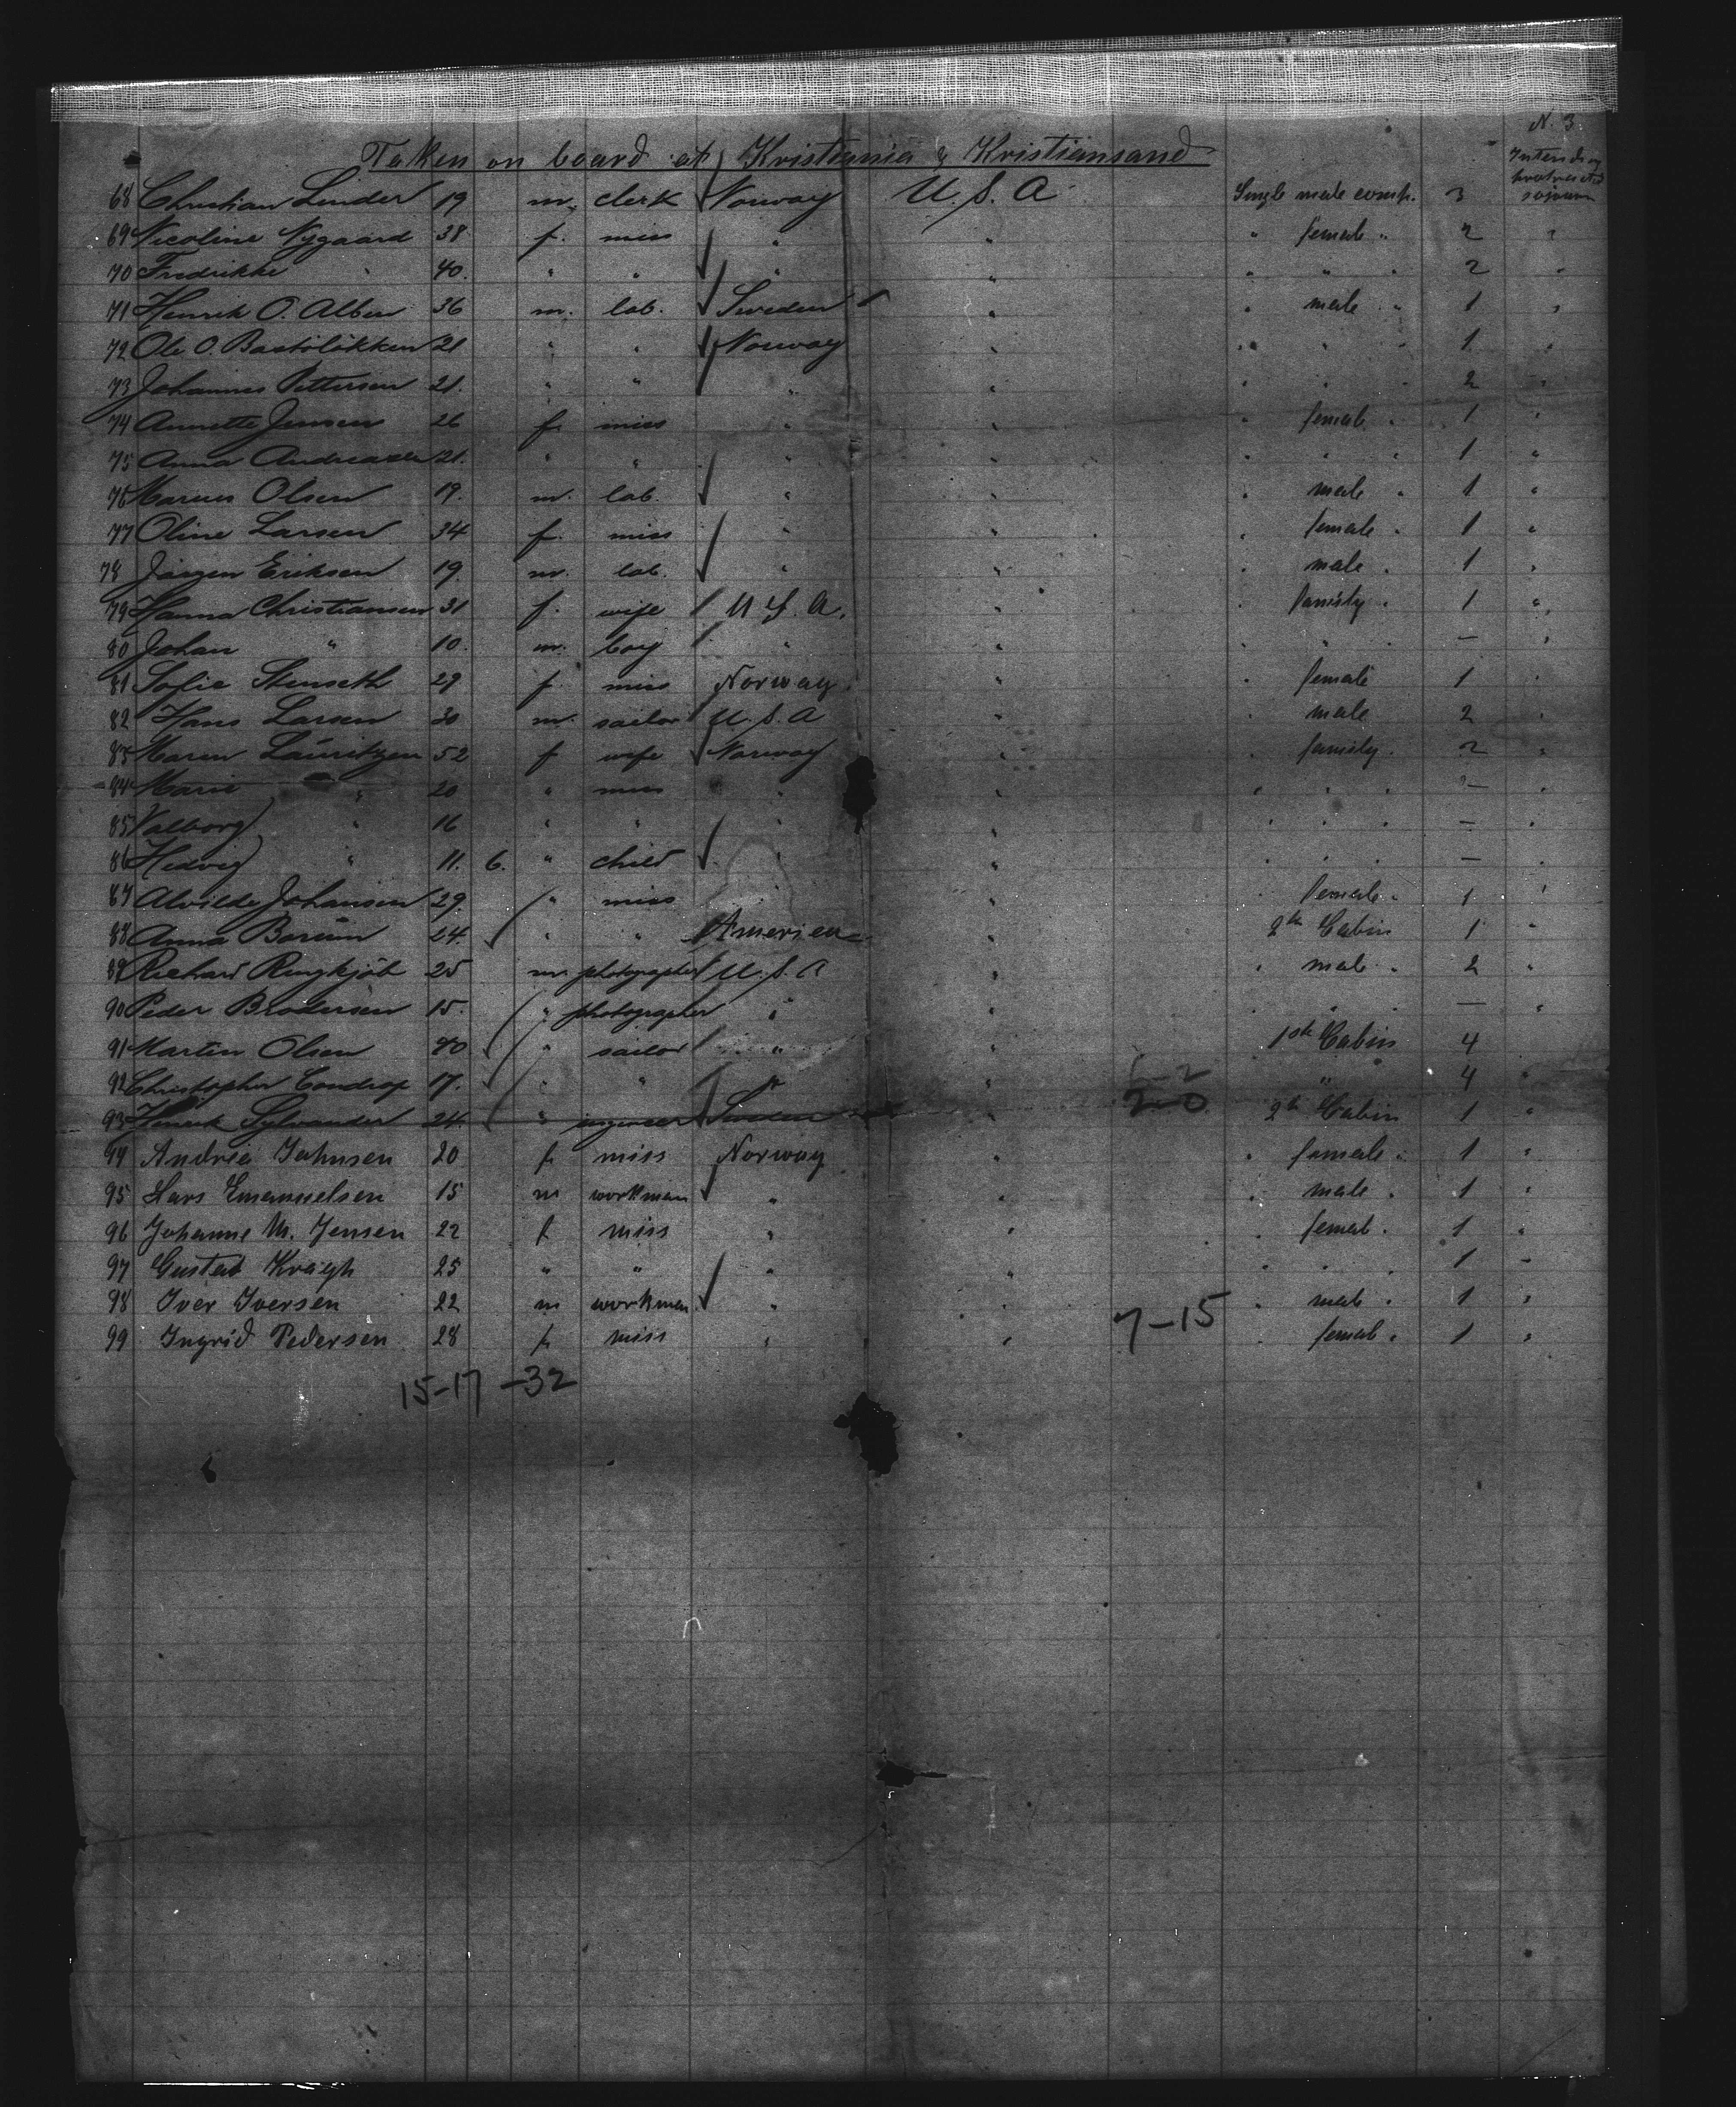 N. 3
Taken on board at Kristiania & Kristiansand
Intending protracted sojourn
68 Christian Linder 19 m. clerk Norway U. S. A Single male comp. 3
69 Nicoline Nygaard 38 f. miss " " " female " 2 "
70 Fredrikke " 40. " " " " " " " 2 "
71 Henrik O. Alben 36 m. lab. Sweden " " male " 1 "
72 Ole O. 21 " " Norway " " " " 1 "
73 Johannes Pettersen 21. " " " " " " " 2 "
74 Annette Jensen 26 f. miss " " " female " 1 "
75 Anna Andreasen 21. " " " " " " " 1 "
76 Marius Olsen 19. m. lab. " " " male " 1 "
77 Oline Larsen 34 f. miss " " " female " 1 "
78 Jörgen Eriksen 19. m. lab. " " " male " 1 "
79 Hanna Christiansen 31 f. wife U. S. A. " " family " 1 "
80 Johan " 10. m. boy " " " " " — "
81 Sofie Stenseth 29 f. miss Norway " " female 1 "
82 Hans Larsen 30 m. sailor U. S. A " " male 2 "
83 Maren Lauritzen 52 f wife Norway " " family " 2 "
84 Marie " 20 " miss " " " " " — "
85 Valborg " 16 " " " " " " " — "
86 Hedvig " 11. 6. " child " " " " " — "
87 Alvilde Johansen 29. " miss " female " 1 "
88 Anna 24. " " America " 2th Cabin 1 "
89 Richard Ringkjöb 25 m. photographer U. S. A " " male " 2 "
90 Peder Brodersen 15. " photographer " " " " " — "
91 Martin Olsen 40 " sailor " " 1th Cabin 4
92 Christopher 17. " " " " 4 "
93 Henrik Sylvander 24. " engineer Sweden 2-0 2th Cabin 1 "
94 Andrea Jahnsen 20 f. miss Norway " " female " 1 "
95 Lars Emanuelsen 15 m workman " " " male " 1 "
96 Johanne M. Jensen 22 f miss " " " female " 1 "
97 Gustav Kragh 25 " " " " " " " 1 "
98 Iver Iversen 22 m workman " " " male " 1 "
99 Ingrid Pedersen 28 f. miss " " 7-15 " female " 1 "
15-17 -32